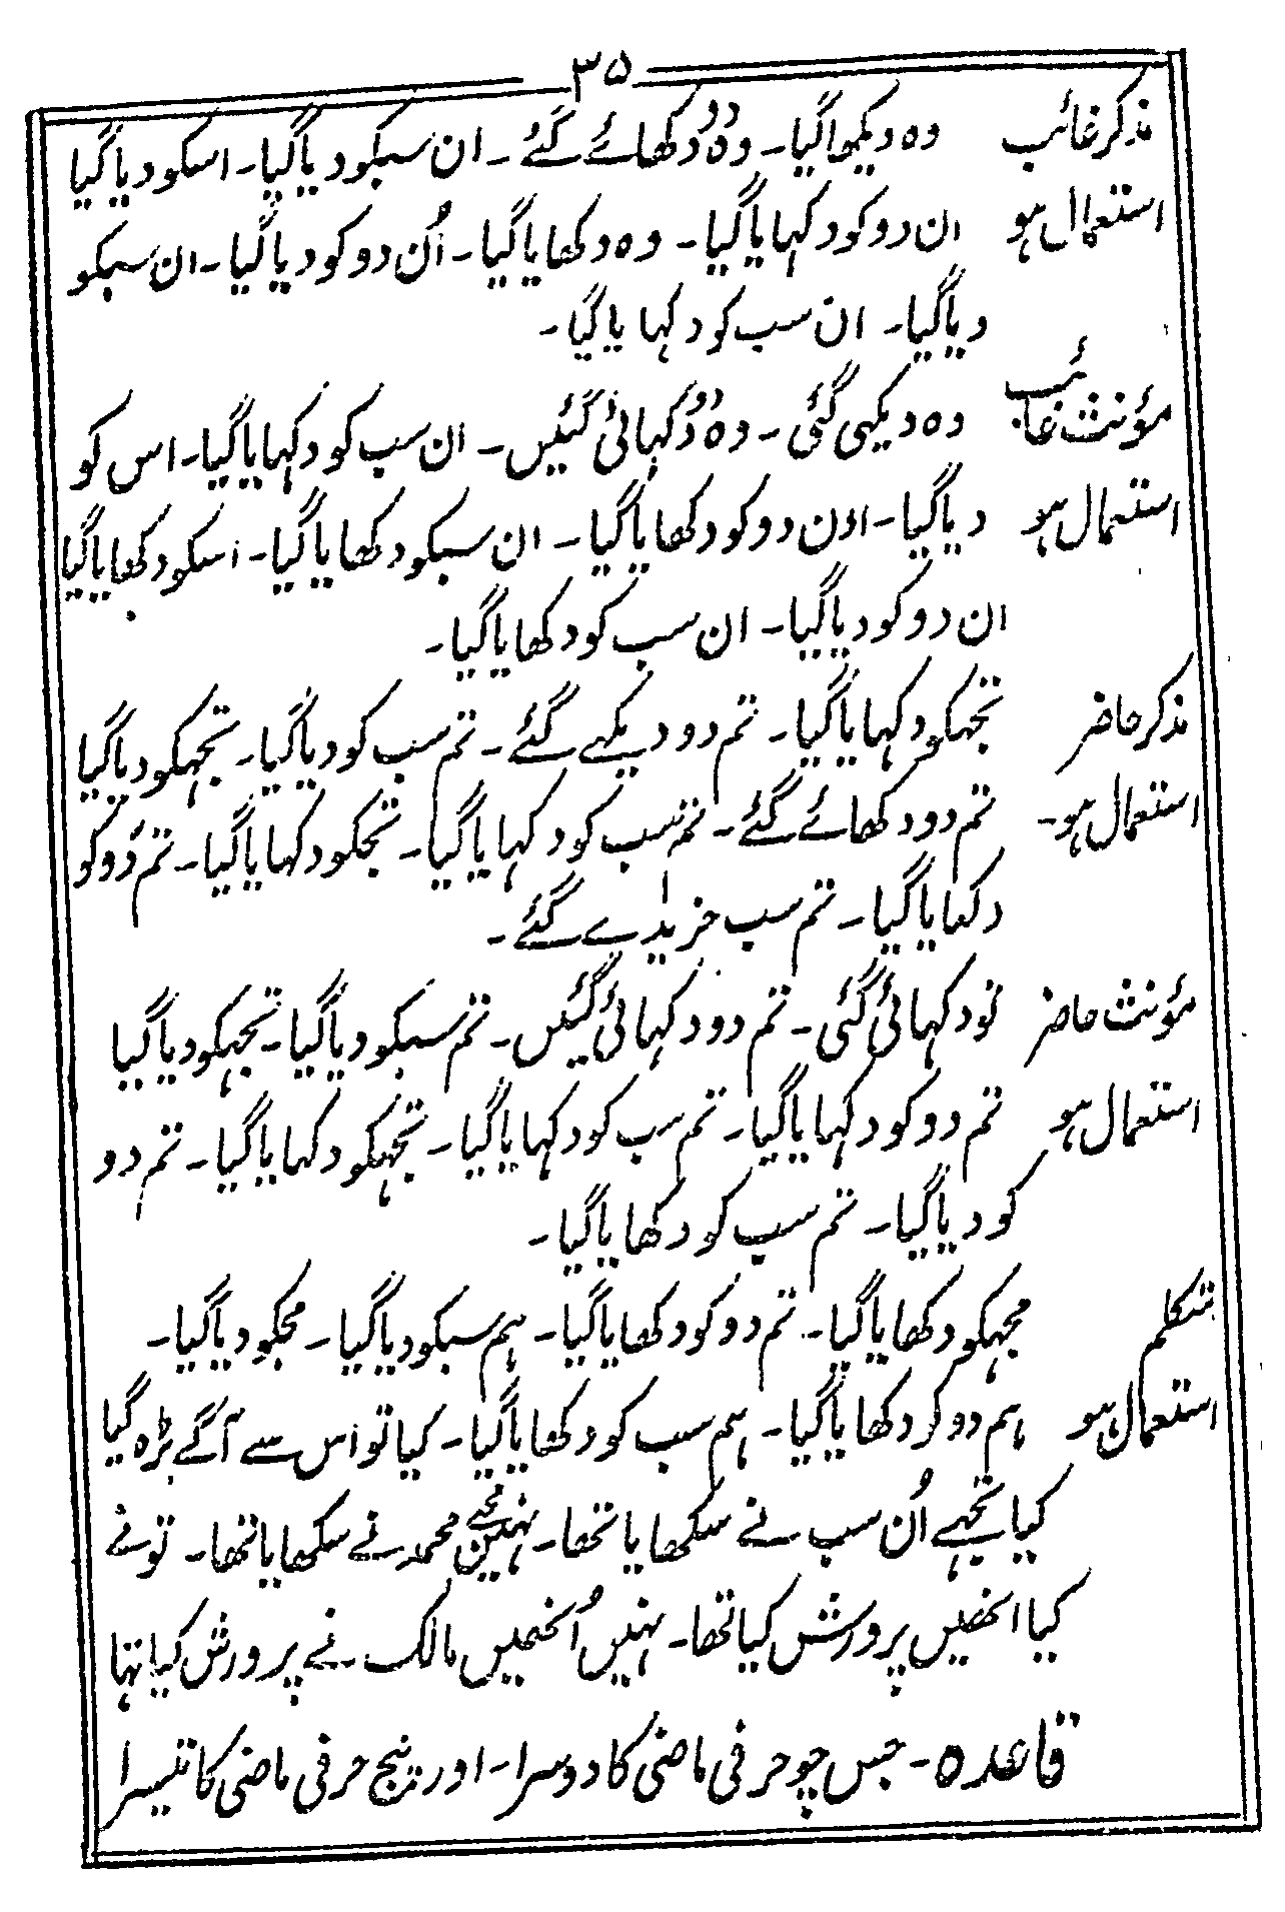 ۳۵
مذکر غائب وہ دیکھا گیا۔ وہ دو دکھائے گئے۔ ان سبکو دیا گیا۔ اسکو دیا گیا
استعمال ہو ان دو کو دکہایا گیا۔ وہ دکھایا گیا۔ اُن دو کو دیا گیا۔ ان سبکو
دیا گیا۔ ان سب کو دکہا یا گیا۔
مؤنث غائب وہ دیکہی گئی۔ وہ دو دکہائی گئیں۔ ان سب کو دکہایا گیا۔ اس کو
استعمال ہو دیا گیا۔ اون دو کو دکھایا گیا۔ ان سبکو دکھایا گیا۔ اسکو دکھایا گیا
ان دو کو دیا گیا۔ ان سب کو دکھایا گیا۔
مذکر حاضر تجہکو دکہایا گیا۔ تم دو دیکہے گئے۔ تم سب کو دیا گیا۔ تجہکو دیا گیا
استعمال ہو۔ تم دو دکھائے گئے۔ تم سب کو دکہا یا گیا۔ تجکو دکہایا گیا۔ تم دو کو
دکھایا گیا۔ تم سب خریدے گئے۔
مؤنث حاضر تو دکہائی گئی۔ تم دو دکہائی گئیں۔ تم سبکو دیا گیا۔ تجہکو دیا گیا
استعمال ہو تم دو کو دکہایا گیا۔ تم سب کو دکہایا گیا۔ تجہکو دکہایا گیا۔ تم دو
کو دیا گیا۔ تم سب کو دکھایا گیا۔
متکلم مجہکو دکھایا گیا۔ تم دو کو دکھایا گیا۔ ہم سبکو دیا گیا۔ مجکو دیا گیا۔
استعمال ہو ہم دو کو دکھایا گیا۔ ہم سب کو دکھایا گیا۔ کیا تو اس سے آگے بڑہ گیا
کیا تجہے اُن سب نے سکھایا تھا۔ نہیں مجھے محمد نے سکھایا تھا۔ تو نے
کیا انھیں پرورش کیا تھا۔ نہیں اُنھیں مالک نے پرورش کیا تہا
قاعدہ۔ جس چو حرفی ماضی کا دوسرا۔ اور پنج حرفی ماضی کا تیسرا